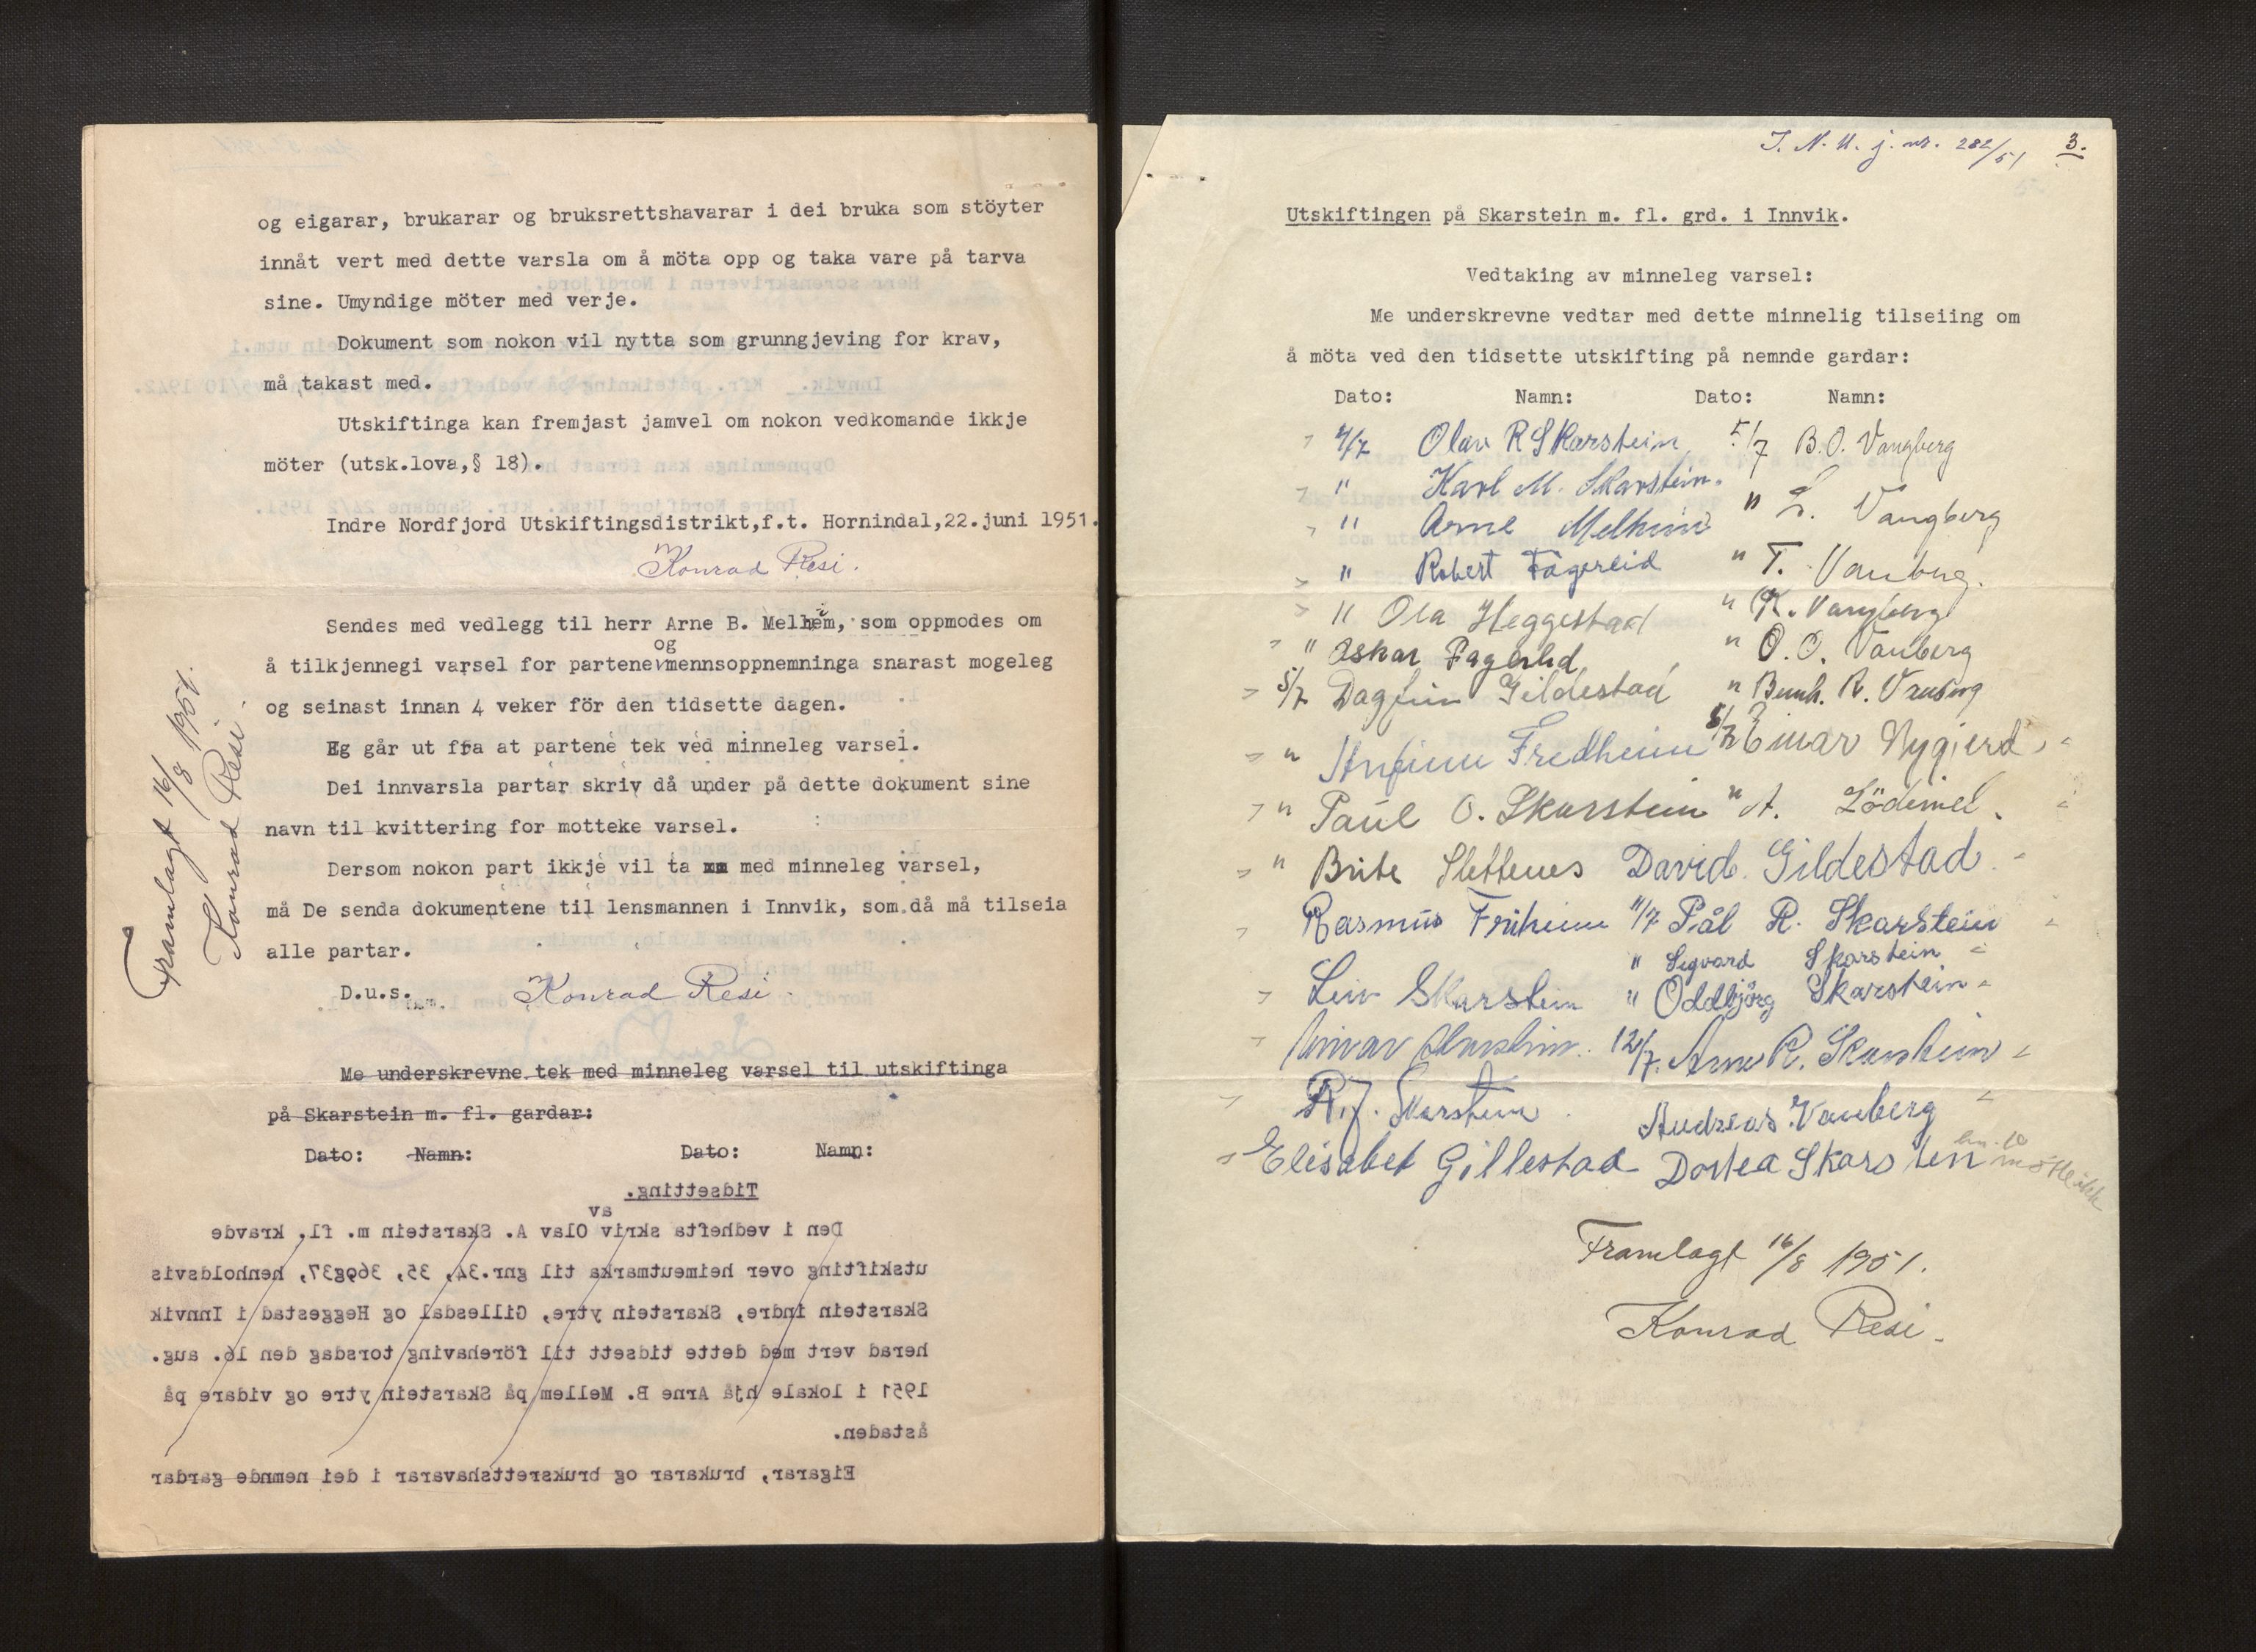 og eigarar, brukarar og bruksrettshavarar i dei bruka som stöyter
innåt vert med dette varsla om å möta opp og taka vare på tarva
sine. Umyndige möter med verje.
Dokument som nokon vil nytta som grunngjeving for krav,
må takast med.
Utskiftinga kan fremjast jamvel om nokon vedkomande ikkje
möter (utsk.lova,§ 18).
Indre Nordfjord Utskiftingsdistrikt,f.t. Hornindal,22.juni 1951.
Konrad Resi.
Sendes med vedlegg til herr Arne B. Melheim, som oppmodes om
å tilkjennegi varsel for partene og mennsoppnemninga snarast mogeleg
og seinast innan 4 veker för den tidsette dagen.
Eg går ut fra at partene tek ved minneleg varsel.
Dei innvarsla partar skriv då under på dette dokument sine
navn til kvittering for motteke varsel.
Dersom nokon part ikkje vil ta med minneleg varsel,
må De senda dokumentene til lensmannen i Innvik, som då må tilseia
alle partar.
D.u.s.
Konrad Resi.
Me underskrevne tek med minneleg varsel til utskiftinga
på Skarstein m. fl. gardar:
Dato: Namn: Dato: Namn:
Tidsetting.
Den i vedhefta skriv av Olav A. Skarstein m. fl. kravde
utskifting over heimeutmarka til gnr.34, 35, 36og37, henholdsvis
Skarstein indre, Skarstein ytre, Gillesdal og Heggestad i Innvik
herad vert med dette tidsett til förehaving torsdag den 16. aug.
1951 i lokale hjå Arne B. Mellem på Skarstein ytre og vidare på
åstaden.
Eigarar, brukarar og bruksrettshavarar i dei nemnde gardar
Framlagt 16/8 1951.
Konrad Resi.
I. N. U. j. nr. 282/51 3.
Utskiftingen på Skarstein m. fl. grd. i Innvik.
Vedtaking av minneleg varsel:
Me underskrevne vedtar med dette minnelig tilseiing om
å möta ved den tidsette utskifting på nemnde gardar:
Dato: Namn: Dato: Namn:
4/7 Olav R Skarstein 5/7 B.O. Vangberg
" Karl M. Skarstein.
" Arne Melheim " L. Vangberg
" Robert Fagerlid " T. Vanberg.
" Ola Heggestad " K. Vangberg
" Oskar Fagerlid " O. O. Vanberg
5/7 Dagfinn Gildestad " Bernh. R. Vanberg
" Anfinn Fredheim 5/7 Einar Nygjerd
" Paul O. Skarstein " A. Lödemel.
" Brite Slettenes David Gildestad
Rasmus Friheim 11/7 Pål R. Skarstein
" Sigvard Skarstein
Leiv Skarstein " Oddbjörg Skarstein
Skarstein. 12/7. Arne R. Skarstein
R. J. Skarstein Andreas Vanberg
Elisabet Gillestad Dortea Skarstein
Framlagt 16/8 1951.
Konrad Resi.